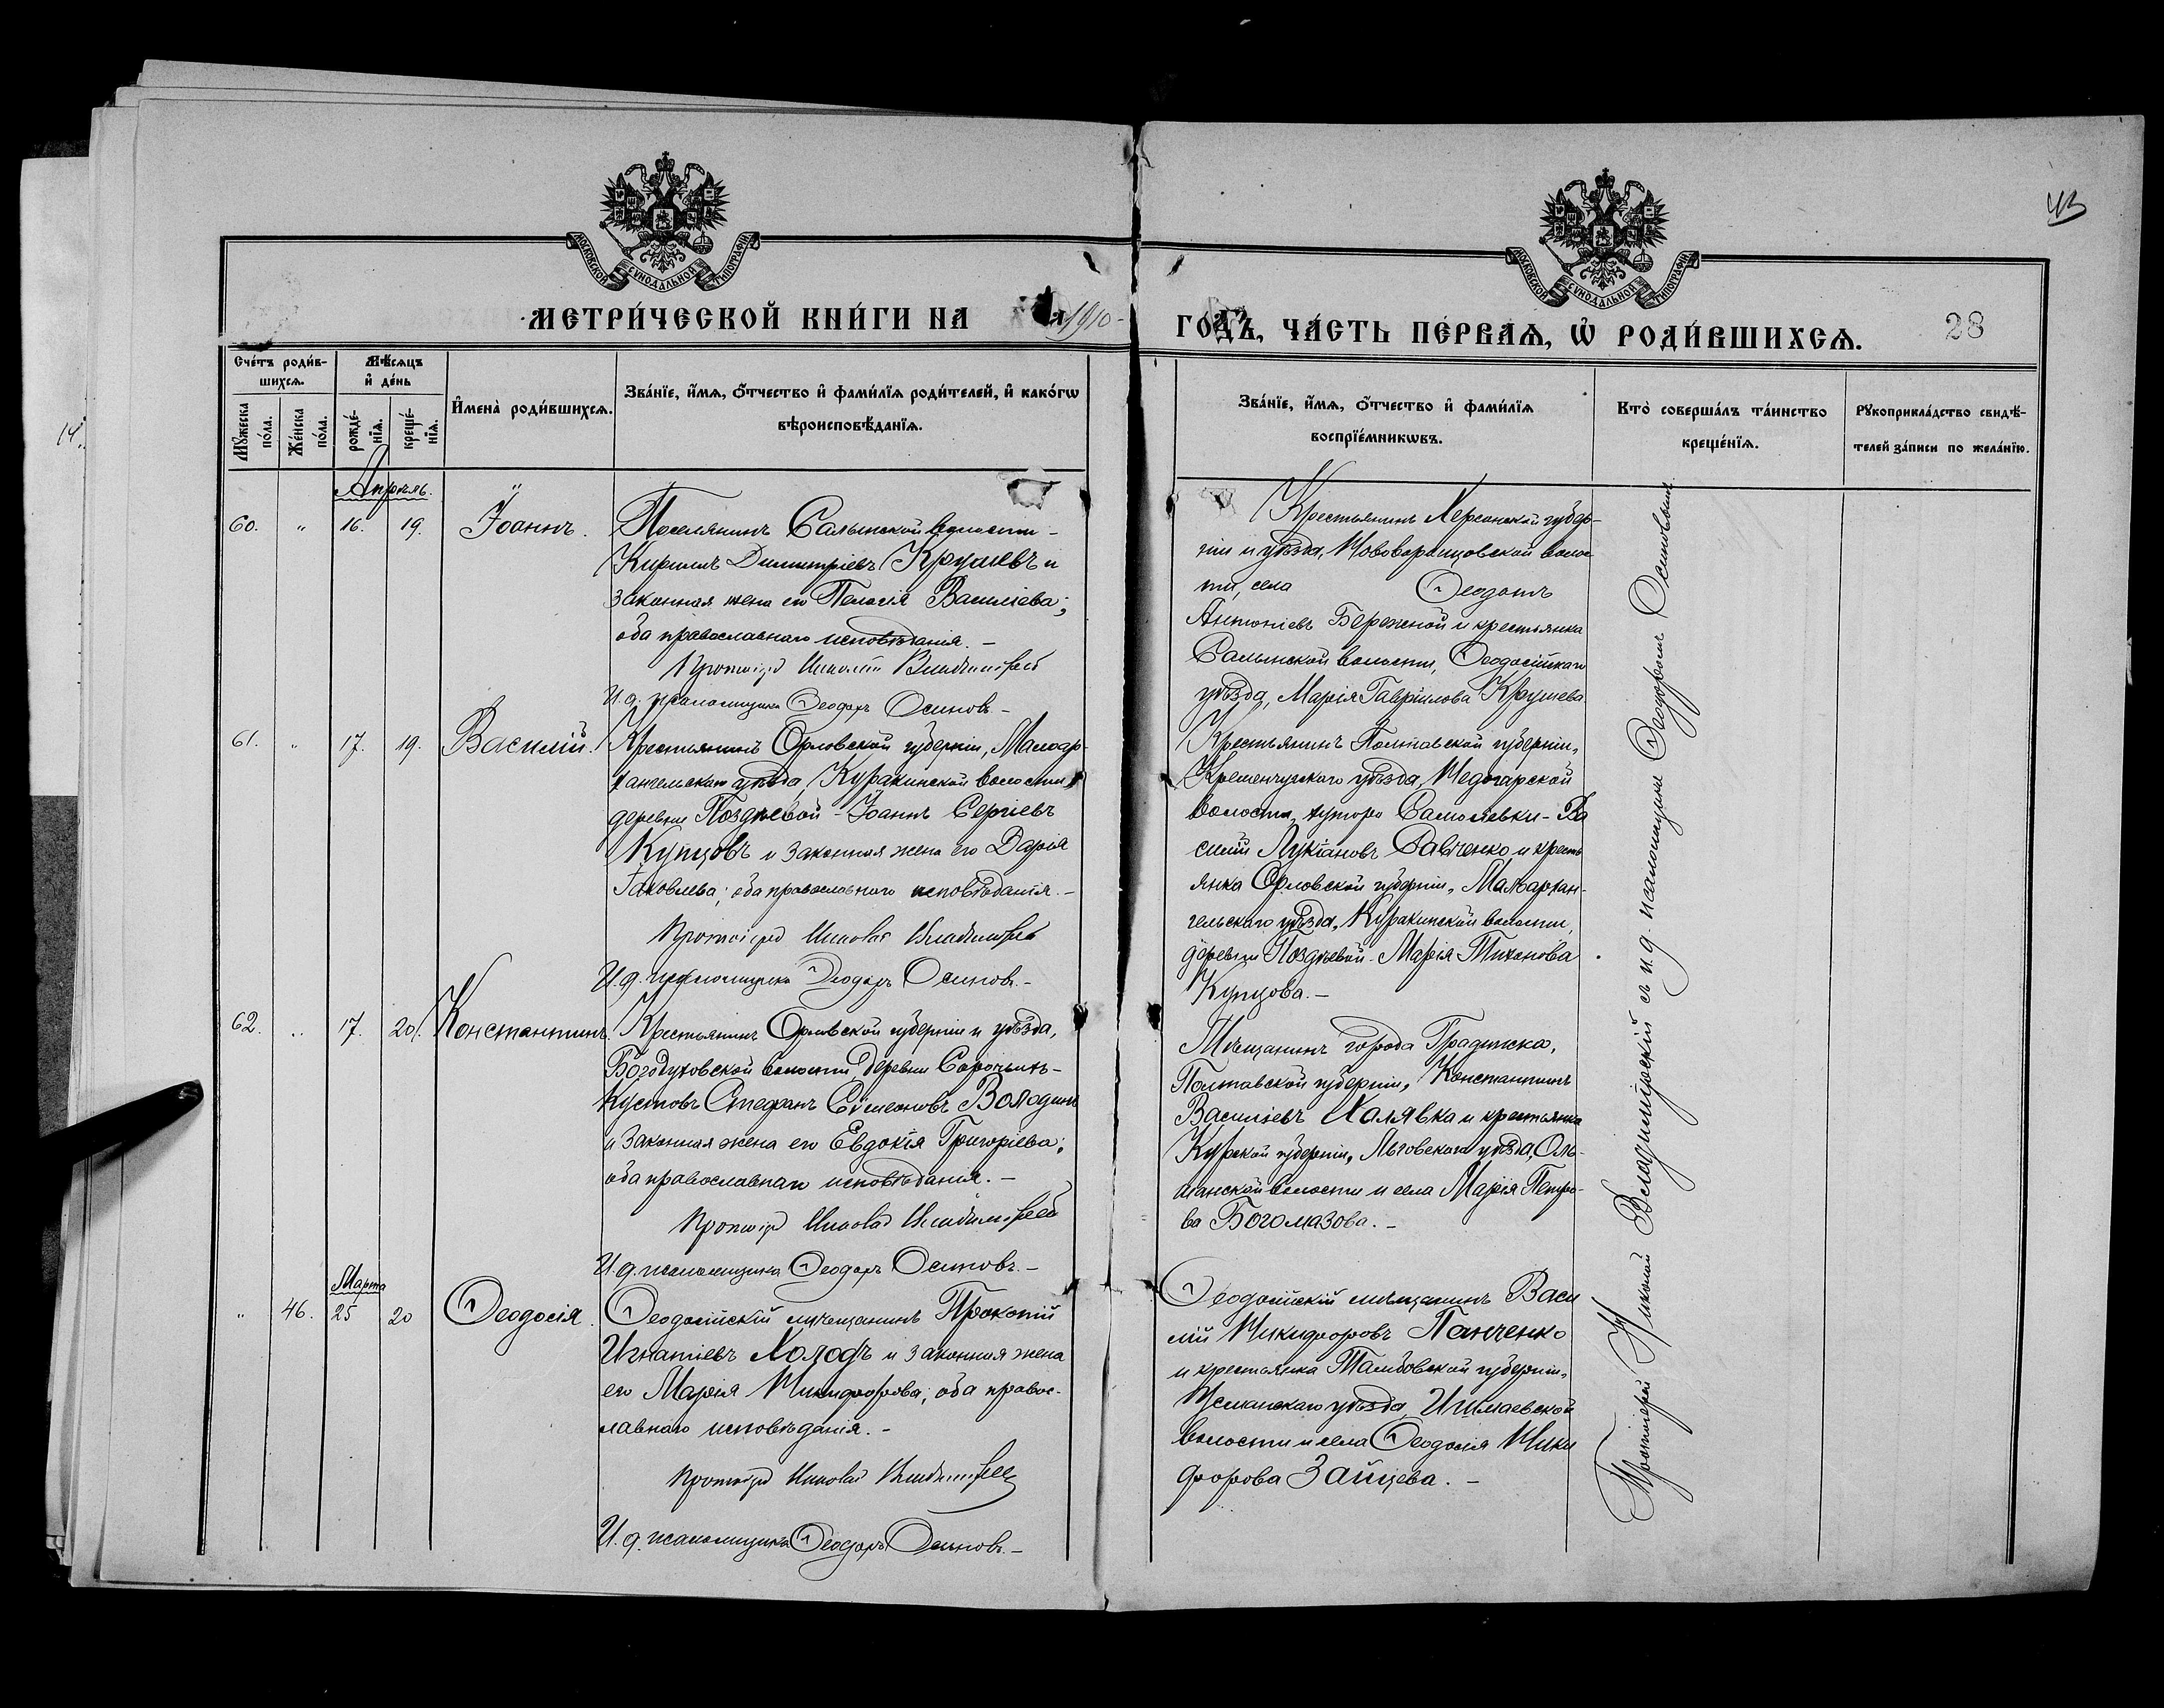 43
МОСКОВСКОЙ СѴНОДАЛЬНОЙ ТИПОГРАФІИ
МОСКОВСКОЙ СѴНОДАЛЬНОЙ ТИПОГРАФІИ
МЕТРИ́ЧЕСКОЙ КНИ́ГИ НА 1910
ГОДЪ, ЧА́СТЬ ПЕ́РВАѦ, Ѡ҆ РОДИ́ВШИХСѦ.
28
Сче́тъ роди́в-
шихсѧ.
Мꙋ́жеска
по́ла.
Же́нска
по́ла.
Мѣ́сѧцъ
и҆ де́нь
рожде́-
нїѧ.
креще́-
нїѧ.
И҆мена̀ роди́вшихсѧ.
Зва́нїе, и҆́мѧ, ѻ҆́тчество и҆ фами́лїѧ роди́телей, и҆ како́гѡ
вѣроисповѣ́данїѧ.
Зва́нїе, и҆́мѧ, ѻ҆́тчество и҆ фами́лїѧ
воспрїе́мникѡвъ.
Кто̀ соверша́лъ та́инство
креще́нїѧ.
Рꙋкоприкла́дство свидѣ́-
телей за́писи по жела́нїю.
14.
Апрѣль.
60. " 16. 19. Іоаннъ.
Поселянинъ Салынской волости -
Кириллъ Димитріевъ Крушевъ и
законная жена его Пелагія Василіева;
оба православнаго исповѣданія. -
Протоіерей Николай Владимірскій
И. д. псаломщика Ѳеодоръ Осиповъ -
Крестьянинъ Херсонской губер-
ніи и уѣзда, Нововоронцовской волос-
ти, села Ѳеодотъ
Антоніевъ Бережной и крестьянка
Салынской волости, Ѳеодосійскаго
уѣзда, Марія Гавріилова Крушева.
61. " 17. 19. Василій.
Крестьянинъ Орловской губерніи, Малоар-
хангельскаго уѣзда, Куракинской волости,
деревни Поздѣевой - Іоаннъ Сергіевъ
Купцовъ и законная жена его Дарія
Іаковлева; оба православнаго исповѣданія. -
Протоіерей Николай Владимірскій
И. д. псаломщика Ѳеодоръ Осиповъ. -
Крестьянинъ Полтавской губерніи,
Кременчугскаго уѣзда,
волости, хутора - Ва
силій Лукіановъ Савченко и кресть
янка Орловской губерніи, Малоархан-
гельскаго уѣзда, Куракинской волости,
деревни Поздѣевой - Марія Тихонова
Купцова. -
62. " 17. 20. Константинъ.
Крестьянинъ Орловской губерніи и уѣзда,
Богодуховской волости, деревни Сорочьихъ-
Кустовъ Стефанъ Сѵмеоновъ Володинъ
и законная жена его Евдокія Григоріева;
оба православнаго исповѣданія. -
Протоіерей Николай Владимірскій
И. д. псаломщика Ѳеодоръ Осиповъ. -
Мѣщанинъ города Градижска,
Полтавской губерніи, Константинъ
Василіевъ Халявка и крестьянка
Курской губерніи, Льговскаго уѣзда, Оль-
шанской волости и села Марія Петро-
ва Богомазова. -
Марта
" 46. 25 20 Ѳеодосія.
Ѳеодосійскій мѣщанинъ Прокопій
Игнатіевъ Холодъ и законная жена
его Марія Никифорова; оба правос-
лавнаго исповѣданія. -
Протоіерей Николай Владимірскій
И. д. псаломщика Ѳеодоръ Осиповъ. -
Ѳеодосійскій мѣщанинъ Васи
лій Никифоровъ Панченко
и крестьянка Тамбовской губерніи,
Усманскаго уѣзда,
волости и села Ѳеодосія Ники
форова Зайцева. -
Протоіерей Николай Владимірскій съ и. д. псаломщика Ѳеодоромъ Осиповымъ.